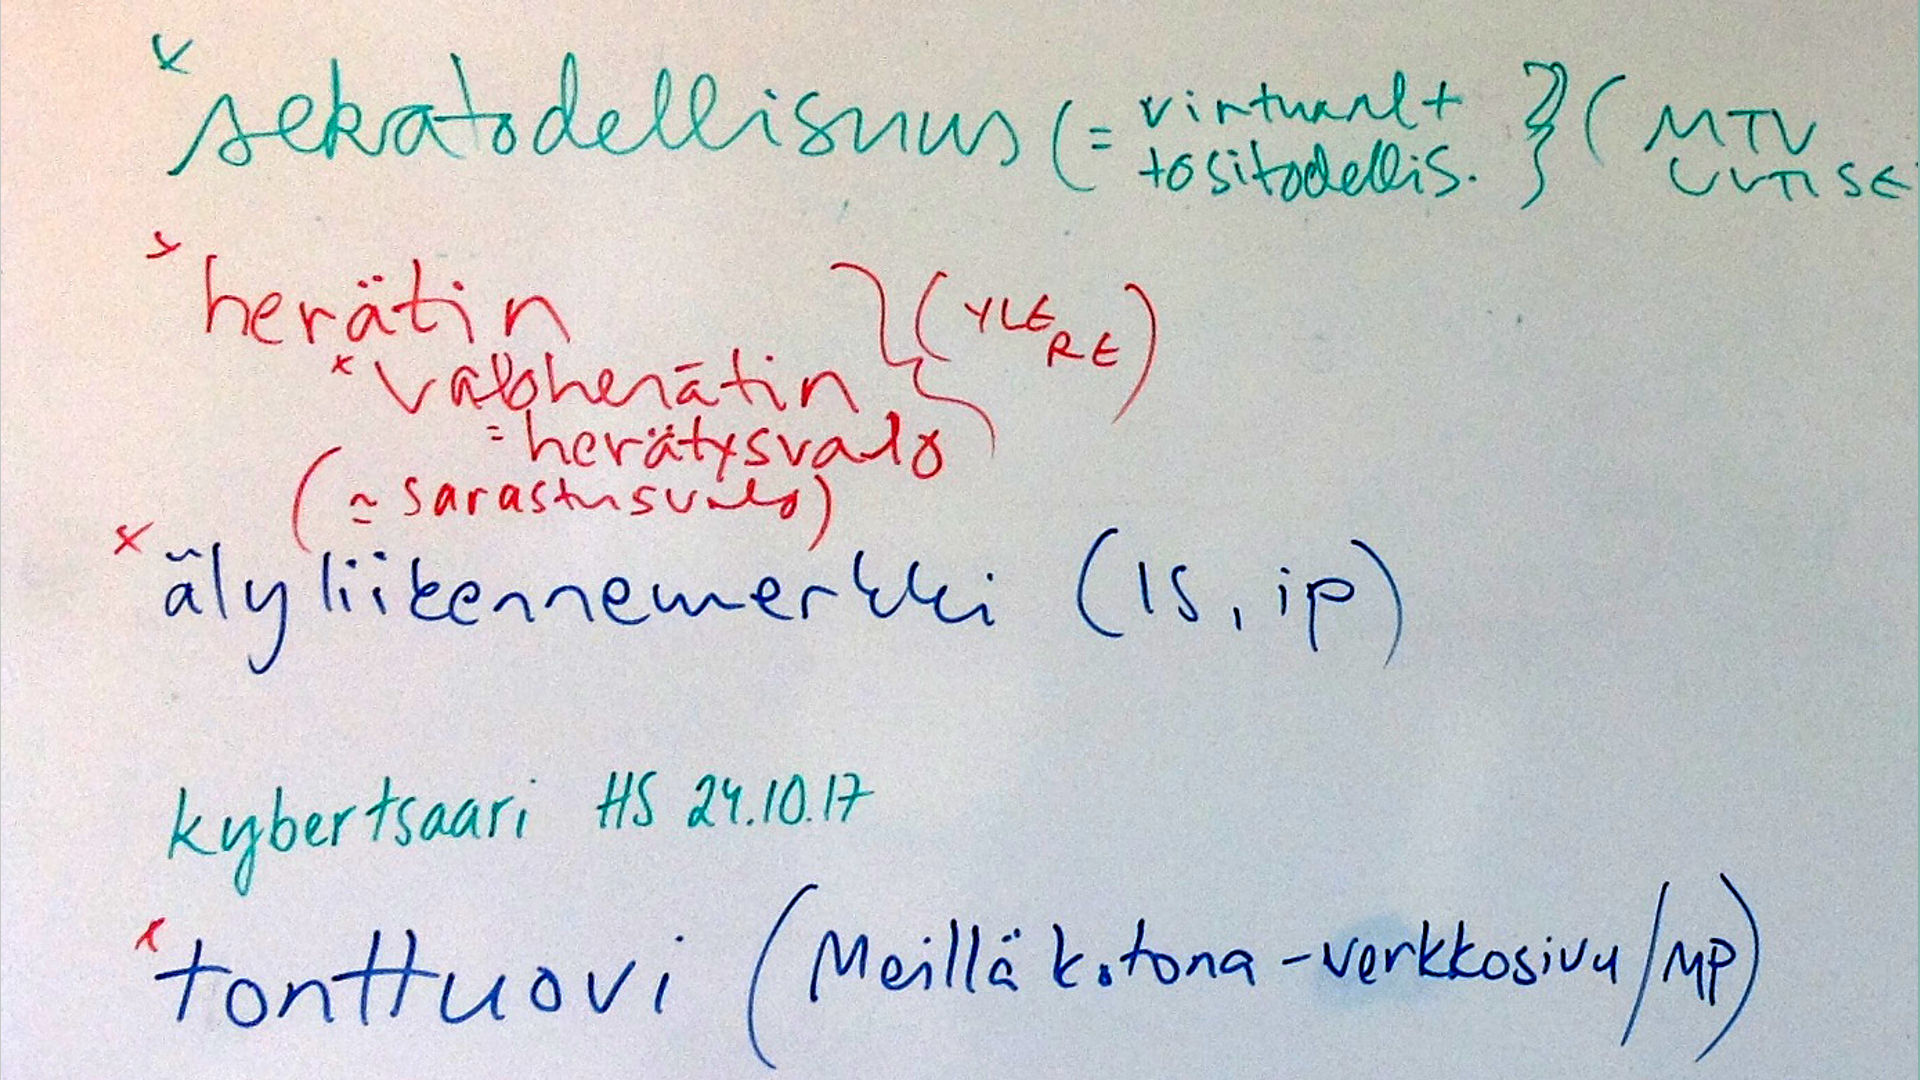 x sekatodellisuus (= virtuaal + tositodellis. } ( MTV UUTISE
x herätin
x valoherätin } (YLE RE)
= herätysvalo
(≈ sarastusvalo)
x älyliikennemerkki (IS, ip)
kybertsaari HS 24.10.17
x tonttuovi (Meillä kotona -verkkosivu/MP)